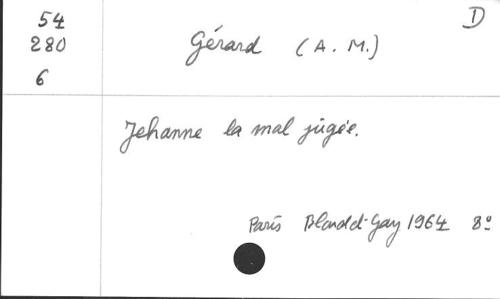 D
54
280
6
Gérard (A. M.)
Jehanne la mal jugée.
Paris Bloudd-Gay 1964 8º